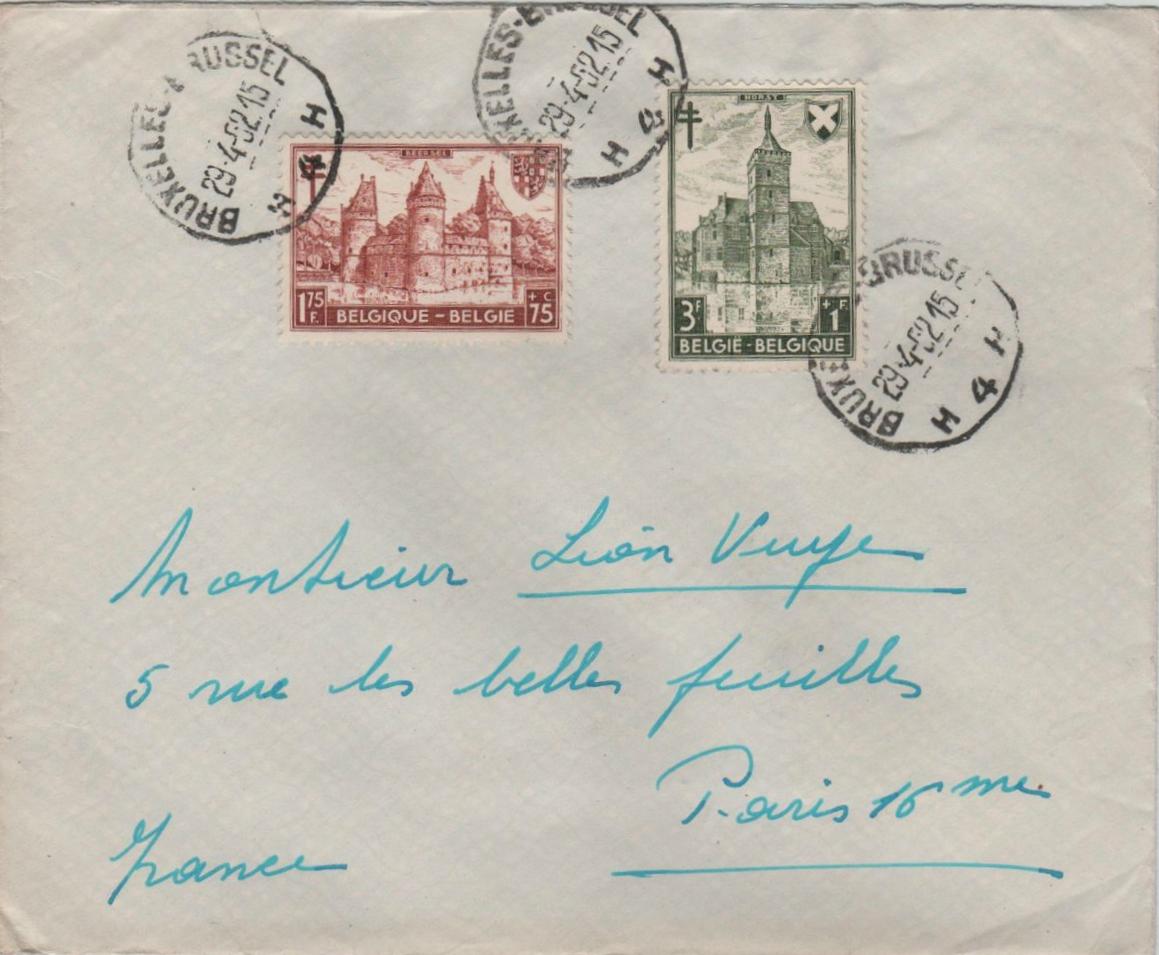 BRUXELLES-BRUSSEL
29-4-52 15
H 4 H
XELLES-BRUSSEL
29-4-52 15
H 4 H
BEERSEL
1 75 F. BELGIQUE - BELGIË + C 75
HORST
3 F + F 1
BELGIË - BELGIQUE
BRUX BRUSSEL
29-4-52 15
H 4 H
Monsieur Léon Vuye
5 rue les belles feuilles
Paris 16 me
France